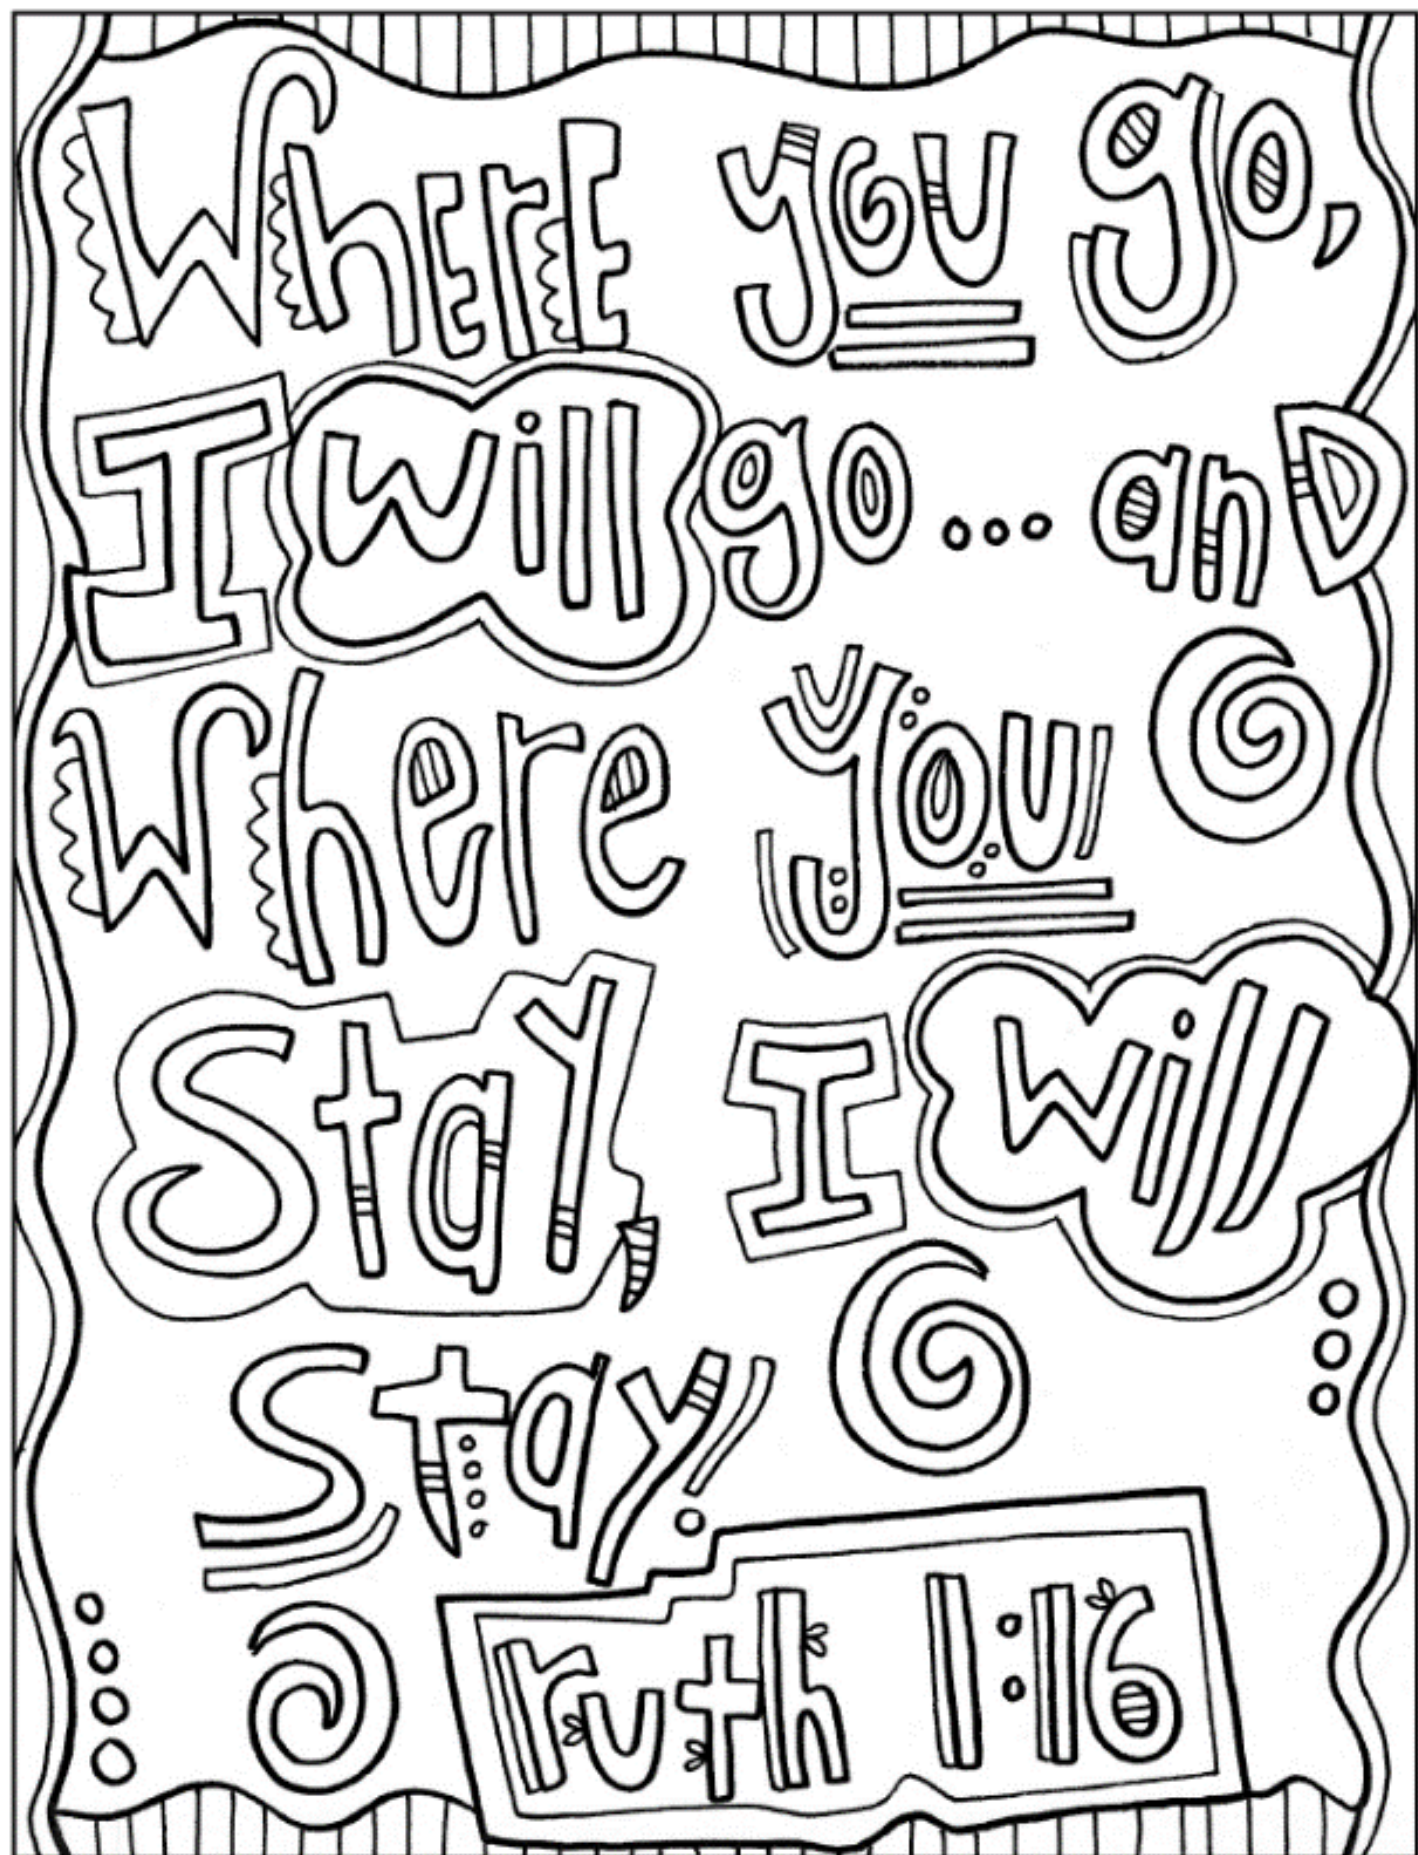 WhErE you go,
I will go... anD
Where you
Stay, I will
Stay.
ruth 1:16